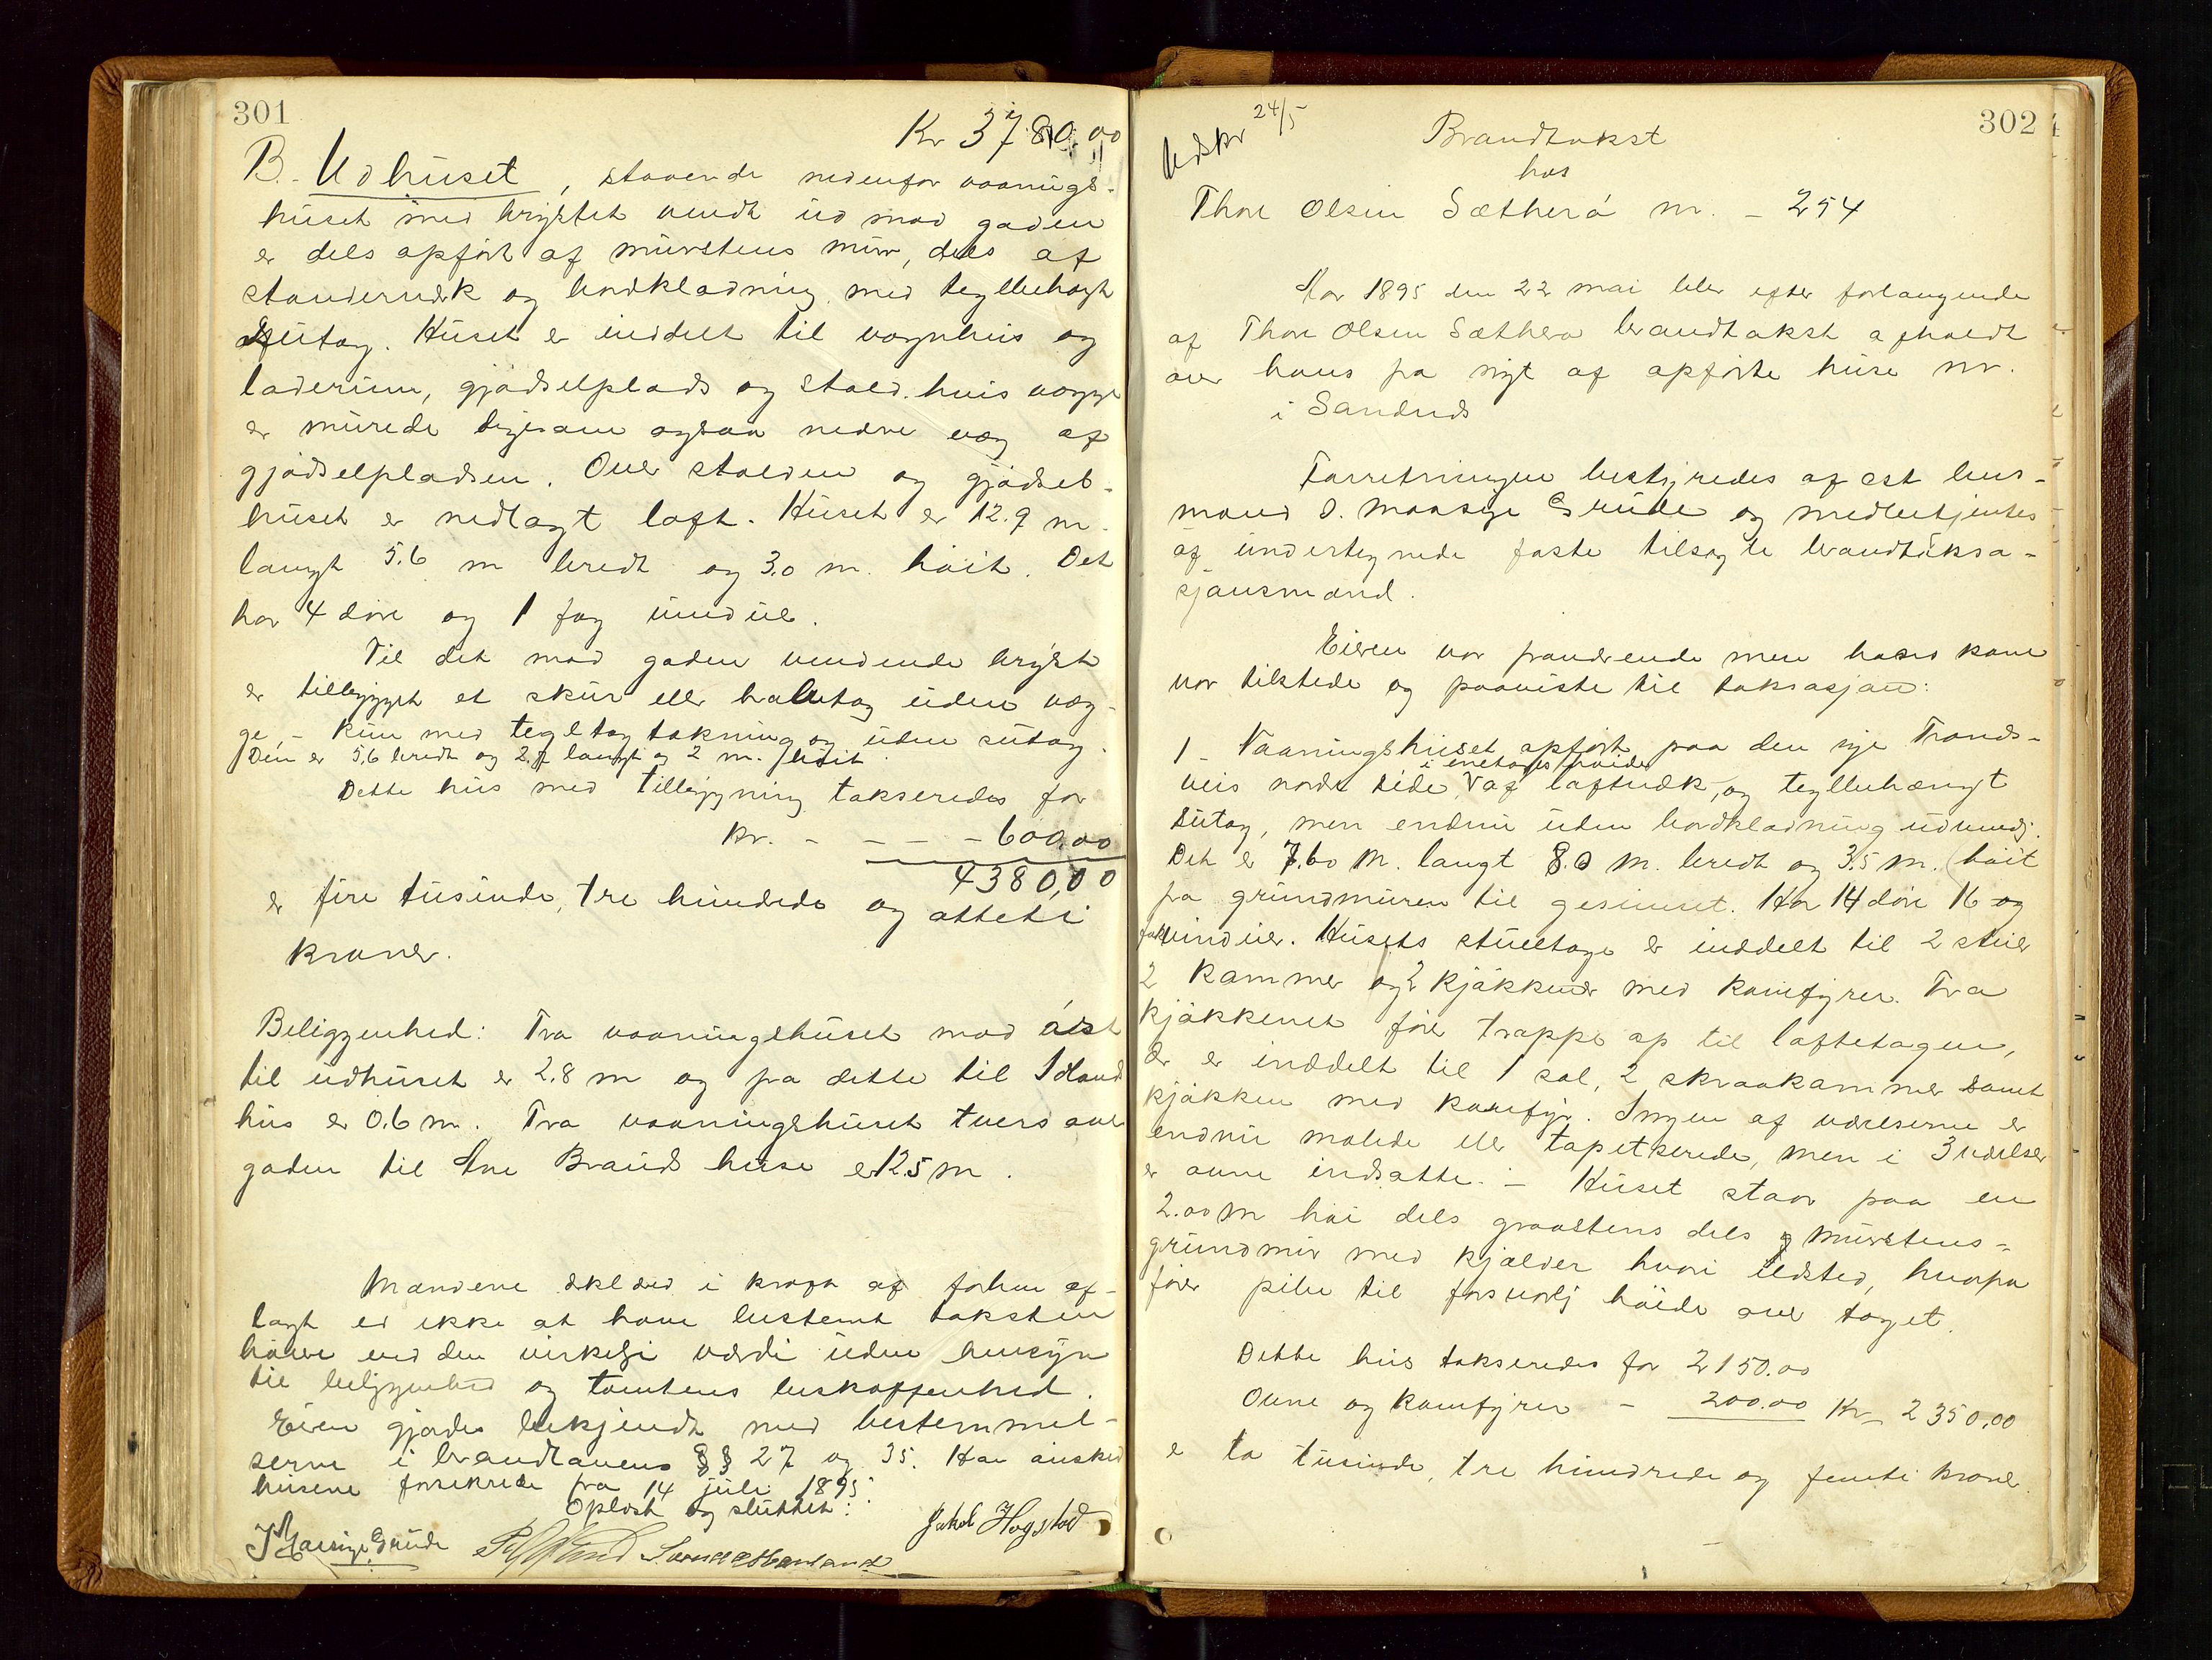 301
Kr 3780,00
B. Udhuset, staaende nedenfor vaanings-
huset med brystet vendt ud mod gaden
er dels opført af murstens mur, dels af
stenderverk og bordklædning med teglbehængt
sutag. Huset er inddelt til vognhus og
laderum, gjødselplads og stald, hvis vægge
er murede ligesom ogsaa nedre væg af
gjødselpladsen. Over stalden og gjødsel-
huset er nedlagt loft. Huset er 12.9 m.
langt 5.6 m bredt og 3.0 m. høit. Det
har 4 døre og 1 fag vindue.
Til det mod gaden vendende bryst
er tilbygget et skur eller halvtag uden væg-
ge, - kun med tegltag tækning og uden sutag.
Den er 5.6 bredt og 2.7 langt og 2 m. høit.
Dette hus med tilbygning takseredes for
kr. - - - - 600.00
4380,00
er fire tusinde, tre hundrede og otteti
kroner.
Beliggenhed: Fra vaaningshuset mod øst
til udhuset er 2.8 m og fra dette til
hus er 0.6 m. Fra vaaningshuset tvers over
gaden til Ane Brauds huse er 12.5 m.
Mændene erklæred i kraft af forhen af-
lagt ed ikke at have bestemt taksten
høiere end den virkelige værdi uden hensyn
til beliggenhed og tomtens beskaffenhed.
Eieren gjordes bekjendt med bestemmel-
serne i brandlovens §§ 27 og 35. Han ønsked
husene forsikrede fra 14 juli 1895.
Oplæst og sluttet:
Maasige Grude Jakob Hogstad
302
Udskr 24/5
Brandtakst
hos
Thore Olsen Sætherø nr. - 254
Aar 1895 den 22 mai blev efter forlangende
af Thore Olsen Sætherø brandtakst afholdt
over hans fra nyt af opførte huse nr.
i Sandnes
Forretningen bestyredes af cst lens-
mand O. Maasige Grude og medbetjentes
af undertegnede faste tilsagte brandtaksa-
sjonsmænd.
Eieren var fraværende men hans kone
var tilstede og paaviste til taksasjon:
1. Vaaningshuset opført paa den nye Tronds-
veis nordre side, i enetages høide af laftverk, og teglbehængt
sutag, men endnu uden bordklædning udvendj.
Det er 7.60 m. langt 8.0 m. bredt og 3.5 m. høit
fra grundmuren til gesimset. Har 14 døre 16 og
fag vinduer. Husets stueetage er inddelt til 2 stuer
2 kammer og 2 kjøkkener med komfyrer. Fra
kjøkkenet fører trappe op til loftetagen,
der er inddelt til 1 sal, 2 skraakammer samt
kjøkken med komfyr. Ingen af værelserne er
endnu malede eller tapetserede, men i 3 værelser
er ovne indsatte. - Huset staar paa en
2.00 m høi dels graastens dels murstens-
grundmur med kjælder hvori ildsted, hvorfra
fører pibe til forsvarlj høide over taget.
Dette hus takseredes for 2150.00
Ovne og komfyrer - 200.00 Kr 2350,00
er to tusinde, tre hundrede og femti kroner.